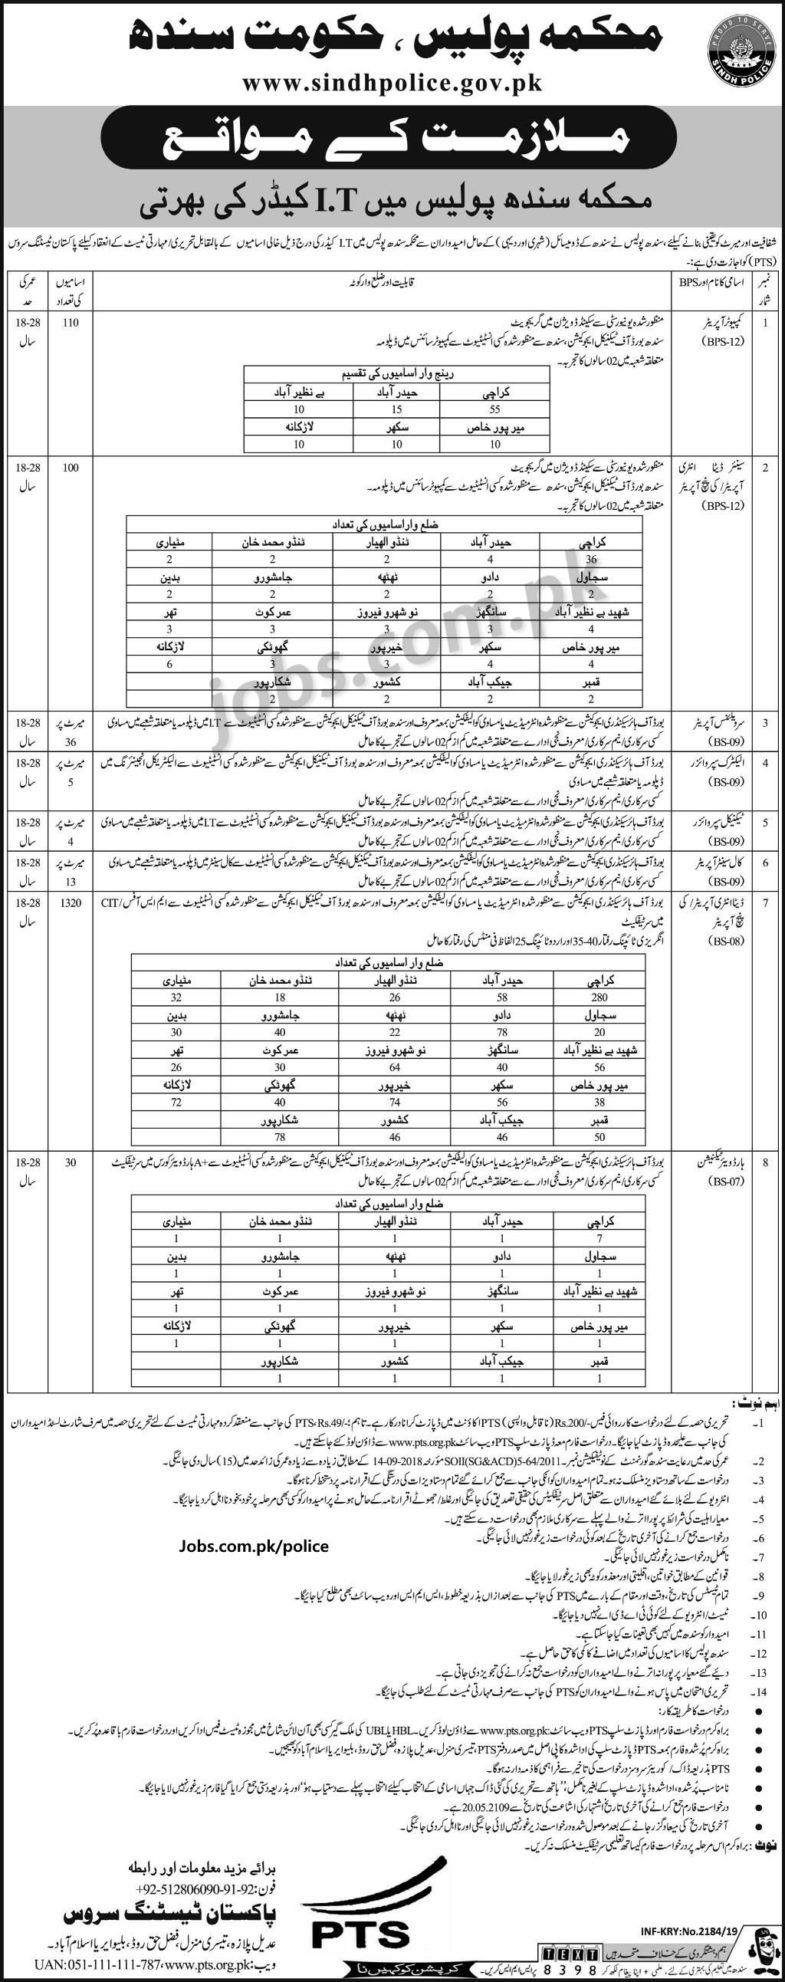 محکمہ پولیس، حکومت سندھ
PROUD TO SERVE
SINDH POLICE
www.sindhpolice.gov.pk
ملازمت کے مواقع
محکمہ سندھ پولیس میں I.T کیڈر کی بھرتی
شفافیت اور میرٹ کو یقینی بنانے کیلئے، سندھ پولیس نے سندھ کے ڈومیسائل (شہری اور دیہی) کے حامل امیدواران سے محکمہ سندھ پولیس میں I.T کیڈر کی درج ذیل خالی اسامیوں کے بالمقابل تحریری/مہارتی ٹیسٹ کے انعقاد کیلئے پاکستان ٹیسٹنگ سروس
(PTS) کو اجازت دی ہے:-
نمبر شمار اسامی کا نام اور BPS قابلیت اور ضلع وار کوٹہ اسامیوں کی تعداد عمر کی حد
1 کمپیوٹر آپریٹر (BPS-12) 110 18-28 سال
منظور شدہ یونیورسٹی سے سیکنڈ ڈویژن میں گریجویٹ
سندھ بورڈ آف ٹیکنیکل ایجوکیشن، سندھ سے منظور شدہ کسی انسٹیٹیوٹ سے کمپیوٹر سائنس میں ڈپلومہ
متعلقہ شعبہ میں 02 سالوں کا تجربہ۔
رینج وار اسامیوں کی تقسیم
کراچی حیدر آباد بے نظیر آباد
55 15 10
میر پور خاص سکھر لاڑکانہ
10 10 10
2 سینئر ڈیٹا انٹری آپریٹر/کی پنچ آپریٹر (BPS-12) 100 18-28 سال
منظور شدہ یونیورسٹی سے سیکنڈ ڈویژن میں گریجویٹ
سندھ بورڈ آف ٹیکنیکل ایجوکیشن، سندھ سے منظور شدہ کسی انسٹیٹیوٹ سے کمپیوٹر سائنس میں ڈپلومہ۔
متعلقہ شعبہ میں 02 سالوں کا تجربہ۔
ضلع وار اسامیوں کی تعداد
کراچی حیدر آباد ٹنڈو الھیار ٹنڈو محمد خان مٹیاری
36 4 2 2 2
سجاول دادو ٹھٹھہ جامشورو بدین
2 2 2 2 2
شھید بے نظیر آباد سانگھڑ نو شھرو فیروز عمر کوٹ تھر
4 3 3 3 3
میر پور خاص سکھر خیرپور گھوٹکی لاڑکانہ
4 4 3 3 6
قمبر جیکب آباد کشمور شکارپور
2 2 2 2
jobs.com.pk
3 سرویلنس آپریٹر (BS-09) میرٹ پر 36 18-28 سال
بورڈ آف ہائر سیکنڈری ایجوکیشن سے منظور شدہ انٹرمیڈیٹ یا مساوی کوالیفکیشن بمعہ معروف اور سندھ بورڈ آف ٹیکنیکل ایجوکیشن سے منظور شدہ کسی انسٹیٹیوٹ سے I.T میں ڈپلومہ یا متعلقہ شعبے میں مساوی
کسی سرکاری/نیم سرکاری/معروف نجی ادارے سے متعلقہ شعبہ میں کم از کم 02 سالوں کے تجربے کا حامل
4 الیکٹرک سپروائزر (BS-09) میرٹ پر 5 18-28 سال
بورڈ آف ہائر سیکنڈری ایجوکیشن سے منظور شدہ انٹرمیڈیٹ یا مساوی کوالیفکیشن بمعہ معروف اور سندھ بورڈ آف ٹیکنیکل ایجوکیشن سے منظور شدہ کسی انسٹیٹیوٹ سے الیکٹریکل انجینئرنگ میں
ڈپلومہ یا متعلقہ شعبے میں مساوی
کسی سرکاری/نیم سرکاری/معروف نجی ادارے سے متعلقہ شعبہ میں کم از کم 02 سالوں کے تجربے کا حامل
5 ٹیکنیکل سپروائزر (BS-09) میرٹ پر 4 18-28 سال
بورڈ آف ہائر سیکنڈری ایجوکیشن سے منظور شدہ انٹرمیڈیٹ یا مساوی کوالیفکیشن بمعہ معروف اور سندھ بورڈ آف ٹیکنیکل ایجوکیشن سے منظور شدہ کسی انسٹیٹیوٹ سے I.T میں ڈپلومہ یا متعلقہ شعبے میں مساوی
کسی سرکاری/نیم سرکاری/معروف نجی ادارے سے متعلقہ شعبہ میں کم از کم 02 سالوں کے تجربے کا حامل
6 کال سینٹر آپریٹر (BS-09) میرٹ پر 13 18-28 سال
بورڈ آف ہائر سیکنڈری ایجوکیشن سے منظور شدہ انٹرمیڈیٹ یا مساوی کوالیفکیشن بمعہ معروف اور سندھ بورڈ آف ٹیکنیکل ایجوکیشن سے منظور شدہ کسی انسٹیٹیوٹ سے کال سینٹر میں ڈپلومہ یا متعلقہ شعبے میں مساوی
کسی سرکاری/نیم سرکاری/معروف نجی ادارے سے متعلقہ شعبہ میں کم از کم 02 سالوں کے تجربے کا حامل
7 ڈیٹا انٹری آپریٹر/کی پنچ آپریٹر (BS-08) 1320 18-28 سال
بورڈ آف ہائر سیکنڈری ایجوکیشن سے منظور شدہ انٹرمیڈیٹ یا مساوی کوالیفکیشن بمعہ معروف اور سندھ بورڈ آف ٹیکنیکل ایجوکیشن سے منظور شدہ کسی انسٹیٹیوٹ سے ایم ایس آفس/CIT
میں سرٹیفکیٹ
انگریزی ٹائپنگ رفتار 40-35 اور اردو ٹائپنگ 25 الفاظ فی منٹس کی رفتار کا حامل
ضلع وار اسامیوں کی تعداد
کراچی حیدر آباد ٹنڈو الھیار ٹنڈو محمد خان مٹیاری
280 58 26 18 32
سجاول دادو ٹھٹھہ جامشورو بدین
20 78 22 40 30
شھید بے نظیر آباد سانگھڑ نو شھرو فیروز عمر کوٹ تھر
56 40 64 30 26
میر پور خاص سکھر خیرپور گھوٹکی لاڑکانہ
38 56 74 40 72
قمبر جیکب آباد کشمور شکارپور
50 46 46 78
8 ہارڈ ویئر ٹیکنیشن (BS-07) 30 18-28 سال
بورڈ آف ہائر سیکنڈری ایجوکیشن سے منظور شدہ انٹرمیڈیٹ یا مساوی کوالیفکیشن بمعہ معروف اور سندھ بورڈ آف ٹیکنیکل ایجوکیشن سے منظور شدہ کسی انسٹیٹیوٹ سے A+ ہارڈ ویئر کورس میں سرٹیفکیٹ
کسی سرکاری/نیم سرکاری/معروف نجی ادارے سے متعلقہ شعبہ میں کم از کم 02 سالوں کے تجربے کا حامل
ضلع وار اسامیوں کی تعداد
کراچی حیدر آباد ٹنڈو الھیار ٹنڈو محمد خان مٹیاری
7 1 1 1 1
سجاول دادو ٹھٹھہ جامشورو بدین
1 1 1 1 1
شھید بے نظیر آباد سانگھڑ نو شھرو فیروز عمر کوٹ تھر
1 1 1 1 1
میر پور خاص سکھر خیرپور گھوٹکی لاڑکانہ
1 1 1 1 1
قمبر جیکب آباد کشمور شکارپور
1 1 1 1
اہم نوٹ:
1- تحریری حصہ کے لئے درخواست کا روائی فیس -/Rs.200 (ناقابل واپسی) PTS اکاؤنٹ میں ڈپازٹ کرانا درکار ہے۔ تاہم؛ -/Rs.49 PTS کی جانب سے منعقد کردہ مہارتی ٹیسٹ کے لئے تحریری حصہ میں صرف شارٹ لسٹڈ امیدواران
کی جانب سے علیحدہ ڈپازٹ کیا جائیگا۔ درخواست فارم معہ ڈپازٹ سلپ PTS ویب سائٹ www.pts.org.pk سے ڈاؤن لوڈ کئے جا سکتے ہیں۔
2- عمر کی حد میں رعایت سندھ گورنمنٹ کے نوٹیفکیشن نمبر۔ SOII(SG&ACD)5-64/2011 مؤرخہ 14-09-2018 کے مطابق زیادہ سے زیادہ عمر کی زائد حد میں (15) سال دی جائیگی۔
3- درخواست کے ساتھ دستاویز منسلک نہ ہو۔ تمام امیدواران کو انکی جانب سے جمع کرائے گئے تمام دستاویزات کی درستگی کے اقرار نامہ پر دستخط کرنا ہوگا۔
4- انٹرویو کے لئے بلائے گئے امیدواران سے متعلق اصل سرٹیفکیٹس کی حقیقی تصدیق کی جائیگی اور غلط/جھوٹے اقرار نامہ کے حامل ہونے پر امیدوار کو کسی بھی مرحلہ پر خود بخود نااہل کر دیا جائیگا۔
5- معیار اہلیت کی شرائط پر پورا اترنے والے پہلے سے سرکاری ملازم بھی درخواست دے سکتے ہیں۔
6- درخواست جمع کرانے کی آخری تاریخ کے بعد کوئی درخواست زیر غور نہیں لائی جائیگی۔
7- نامکمل درخواست زیر غور نہیں لائی جائیگی۔
Jobs.com.pk/police
8- قوانین کے مطابق خواتین، اقلیتی اور معذور کوٹہ بھی زیر غور لایا جائیگا۔
9- تمام ٹیسٹس کی تاریخ، وقت اور مقام کے بارے میں PTS کی جانب سے بعد ازاں بذریعہ خطوط، ایس ایم ایس اور ویب سائٹ بھی مطلع کیا جائیگا۔
10- ٹیسٹ/انٹرویو کے لئے کوئی ٹی اے ڈی اے نہیں دیا جائیگا۔
11- امیدوار کو سندھ میں کہیں بھی تعینات کیا جاسکتا ہے۔
12- سندھ پولیس کا اسامیوں کی تعداد میں اضافے کا کمی کا حق حاصل ہے۔
13- دیئے گئے معیار پر پورا نہ اترنے والے امیدواران کو درخواست جمع نہ کرانے کی تجویز دی جاتی ہے۔
14- تحریری امتحان میں پاس ہونے والے امیدواران کو PTS کی جانب سے صرف مہارتی ٹیسٹ کے لئے طلب کی جائیگا۔
• درخواست کا طریقہ کار:
• براہ کرم درخواست فارم اور ڈپازٹ سلپ PTS ویب سائٹ: www.pts.org.pk سے ڈاؤن لوڈ کریں۔ HBL یا UBL کی ملک گیر کسی بھی آن لائن شاخ میں مجوزہ ٹیسٹ فیس ادا کریں اور درخواست فارم باقاعدہ پُر کریں۔
• براہ کرم پُر شدہ فارم بمعہ PTS ڈپازٹ سلپ کی ادا شدہ کاپی اصل میں صدر دفتر PTS، تیسری منزل، عدیل پلازہ، فضل حق روڈ، بلیو ایریا اسلام آباد کو بھیجیں۔
• PTS بذریعہ ڈاک/کوریئر سروس درخواست کی تاخیر سے فراہمی کا ذمہ دار نہ ہوگا۔
• نامناسب پُر شدہ، ادا شدہ ڈپازٹ سلپ کے بغیر نامکمل، "ہاتھ سے تحریر کی گئی ڈاک جہاں اسامی کے انتخاب کیلئے انتخاب پہلے سے دستیاب ہو" اور بذریعہ دستی جمع کرایا گیا فارم زیر غور نہیں لایا جائیگا۔
• درخواست فارم جمع کرانے کی آخری تاریخ اشتہار کی اشاعت کی تاریخ سے 20.05.2109 ہے۔
• آخری تاریخ کی میعاد گزر جانے کے بعد موصول شدہ درخواست زیر غور نہیں لائی جائیگی اور نااہل کردی جائیگی۔
نوٹ: براہ کرم اس مرحلہ پر درخواست فارم کیساتھ تعلیمی سرٹیفکیٹ منسلک نہ کریں۔
برائے مزید معلومات اور رابطہ
فون: +92-512806090-91-92
پاکستان ٹیسٹنگ سروس
عدیل پلازہ، تیسری منزل، فضل حق روڈ، بلیو ایریا اسلام آباد۔
ویب: www.pts.org.pk، UAN:051-111-111-787
PTS
INF-KRY:No.2184/19
ہم دہشتگردی کے خلاف متحد ہیں
کرپشن کو کہیں نا
TEXT
8398